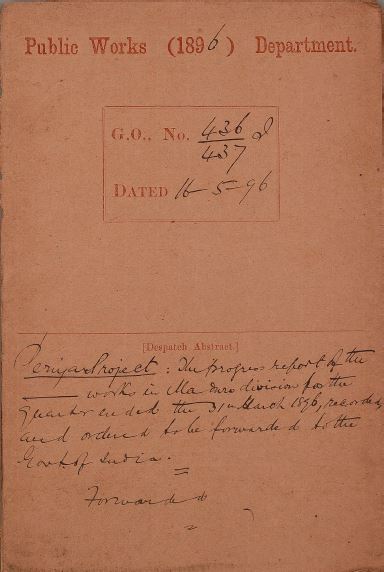 Public Works (1896) Department.
G.O., No. 436 I
437
DATED 16-5-96
[Despatch Abstract.]
Periyar Project : The progress report of the
works in Madura division for the
quarter ended the 31st March 1896, recorded
and ordered to be forwarded to the
Govt of India.
Forwarded